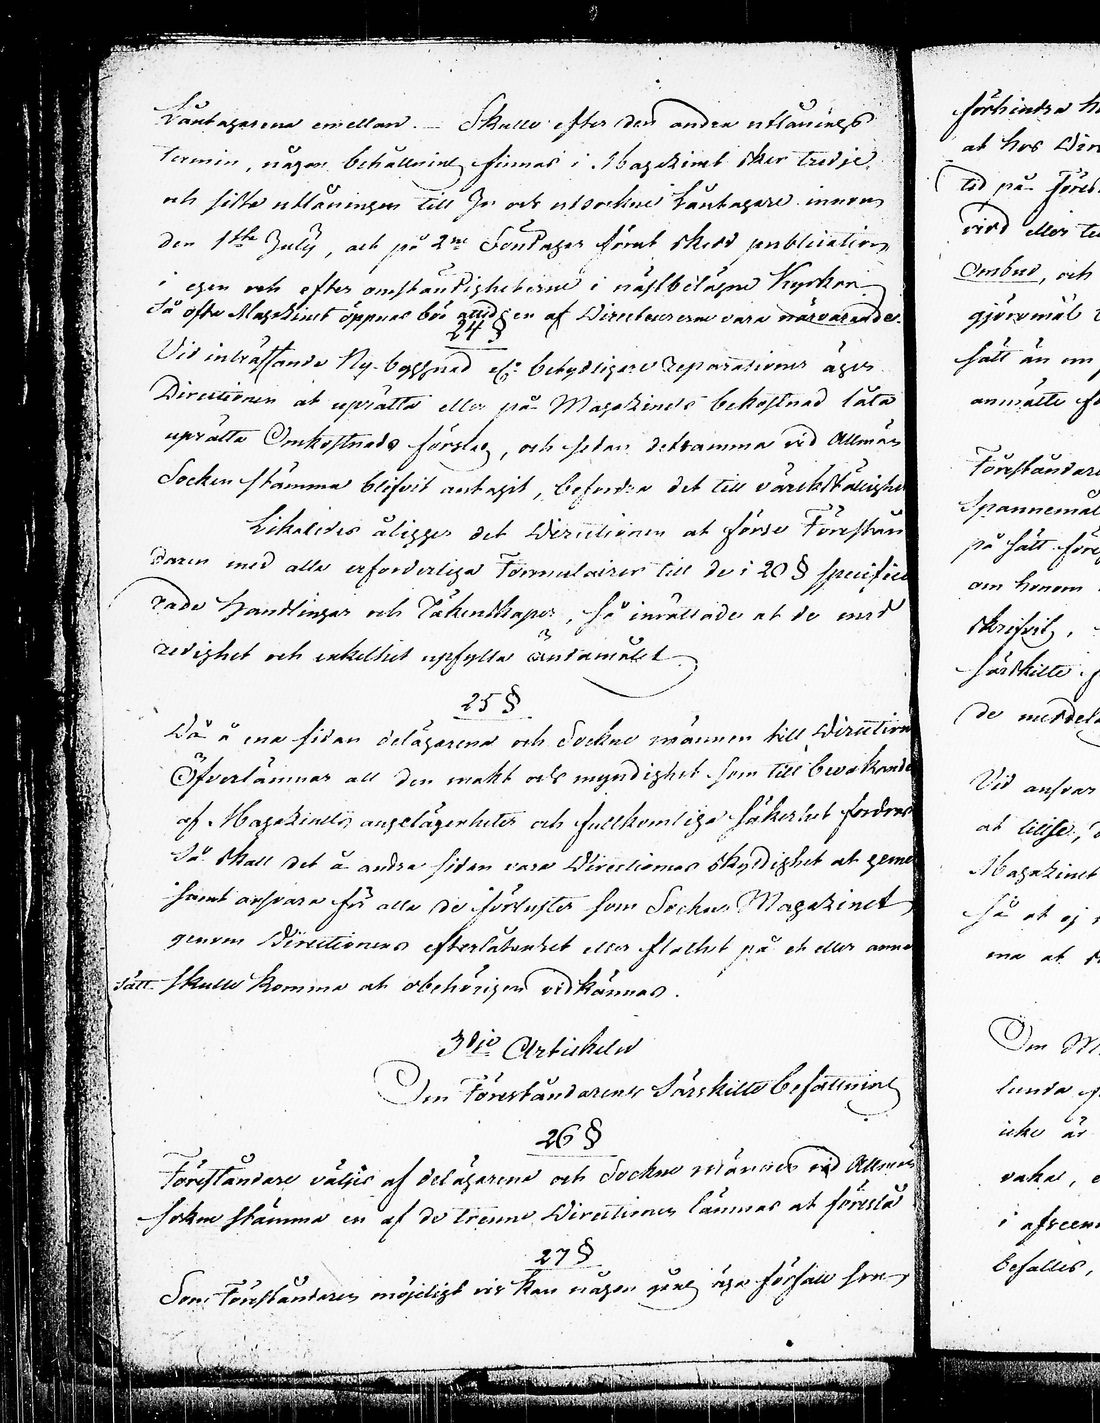 Låntagarena emellan. – Skulle efter den andra utlånings
termin, någon behållning finnas i Magazinet sker tredje
och sista utlåningen till In och utsockne Låntagare innom
den 1ste July, och på 2ne Söndagar förut skedd publication
i egen och efter omständigheterne i näst belägne Kyrkor.
Så ofta Magazinet öppnas bör altid en af Directeurerne vara närvarande.
24 §
Vid inträffande Ny-byggnad eller betydligare reparationer äger
Directionen at uprätta eller på Magazinets bekostnad låta
uprätta Omkostnads förslag, och sedan detsamma vid Allmän
Socken stämma blifvit antagit, befordra det till värckställighet
Likaledes åligger det Directionen at förse Förestån
daren med alla erforderliga Formulairer till de i 20 § specifice
rade handlingar och räkenskaper, så inrättade at de med
redighet och enkelhet upfylla ändamålet.
25 §
Då å ena sidan delägarena och Sockne männen till Direction
Öfverlämnar all den makt och myndighet som till bevakande
af Magazinets angelägenheter och fullkomliga säkerhet fordras
Så skall det å andra sidan vara Directionens skyldighet at gemen
samt ansvara för alla de förluster som Sockne Magazinet
genom Directionens efterlåtenhet eller flathet på et eller annat
sätt skulle komma at obehörigen vidkännas.
3dje Artickeln
Om Föreståndarens Särskilte befattning
26 §
Föreståndare väljes af delägarena och Sockne männen vid Allmän
sokne stämma en af de trenne Directionen lämnas at föreslå
27 §
Som Föreståndaren möjeligt vis kan någon gång äga förfall som
förhindra
at hos
tid på
vird eller
Ombud, och
gjöromål
sätt än
anmälte
Föreståndare
Spannemål
på sätt
om honom
skrefvit,
särskilte
de meddela
Vid ansvar
at tillse,
Magazinet
så at ej
ma at
Om
lunda
icke är
vaka,
i afseen
befallés,